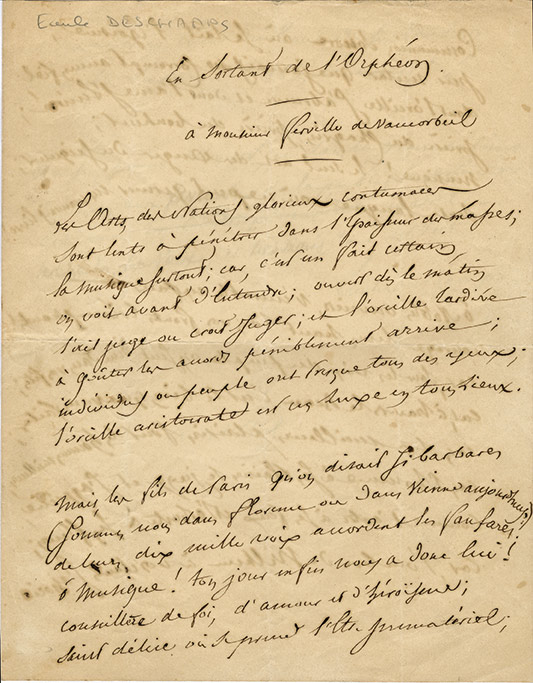 Emile DESCHAMPS
En Sortant de l'Orphéon.
à Monsieur Gerville de Vaucorbeil
Les Arts, des Nations glorieux contumaces
sont lents à pénétrer dans l'Épaisseur des masses;
la musique surtout; car, c'est un fait certain
on voit avant d'entendre; ouvert dès le matin
l'œil juge ou croit juger; et l'oreille tardive
à goûter les accords péniblement arrive;
individus ou peuple ont presque tous des yeux;
l'oreille aristocrate est un luxe en tous lieux.
Mais, les fils de Paris qu'on disait si barbares
(Sommes nous dans florence ou dans Vienne aujourd'hui?)
de leurs dix mille voix accordent les fanfares!
ô Musique! ton jour enfin nous a donc lui!
conseillère de foi, d'amour et d'héroïsme;
saint délire où se prend l'Être